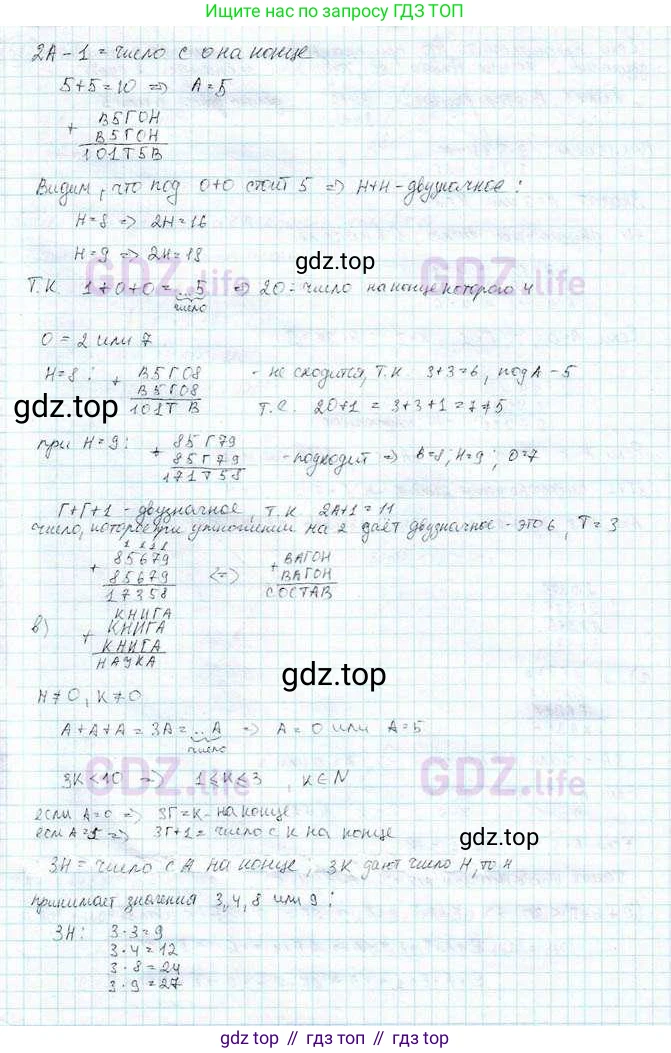 Ищите нас по запросу ГДЗ ТОП
2А - 1 = число с 0 на конце
5 + 5 = 10 => А = 5
+ В5ГОН
В5ГОН
101Т5В
Видим, что под О+О стоит 5 => Н+Н - двузначное:
Н = 8 => 2Н = 16
Н = 9 => 2Н = 18
GDZ.life
gdz.top
GDZ.life
Т.К. 1 + О + О = ...5 => 2О = число на конце которого 4
число
О = 2 или 7
Н = 8: + В5ГО8 - не сходится, т.к. 3+3=6, под А - 5
В5ГО8
101Т В т.е. 2О+1 = 3+3+1 = 7≠5
gdz.top
gdz.top
при Н = 9: + 85Г79
85Г79 - подходит => В=8; Н=9; О=7
171Т58
Г+Г+1 - двузначное, т.к. 2А+1 = 11
число, которое при умножении на 2 даёт двузначное - это 6, Т = 3
1 1 1 1
+ 85679 <=> + ВАГОН
85679 ВАГОН
17358 СОСТАВ
в) КНИГА
+ КНИГА
КНИГА
НАУКА
gdz.top
Н ≠ 0, К ≠ 0
А + А + А = 3А = ...А => А = 0 или А = 5
число
3К < 10 => 1 ≤ К ≤ 3, К ∈ N
GDZ.life
GDZ.life
если А=0 => 3Г=К - на конце
если А=5 => 3Г+1 = число с К на конце
3Н = число с А на конце; 3К дают число Н, то Н
принимает значения 3, 4, 8 или 9:
3Н: 3·3 = 9
3·4 = 12
3·8 = 24
3·9 = 27
gdz.top // гдз топ // gdz.top